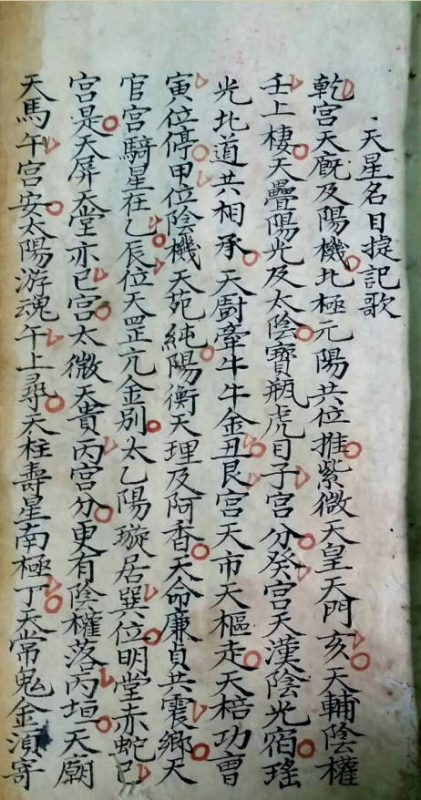 天星名目掟記歌
乾宮天厩及陽機北極元陽共位推紫微天皇天門亥天輔陰權
壬上棲天疊陽光及太陰寶瓶虎日子宮分癸宮天漢陰光宿瑤
光北道共相承天厨牽牛牛金丑艮宮天市天樞走天棓功曹
寅位停甲位陰機天苑純陽衡天理及阿香天命廉貞共震鄉天
官宮騎星在乙辰位天罡亢金别太乙陽璇居巽位明堂赤蛇巳
宮是天屏天堂亦巳宮太微天貴丙宮分更有陰權落丙垣天廟
天馬午宮安太陽游魂午上尋天柱壽星南極丁天常鬼金須寄